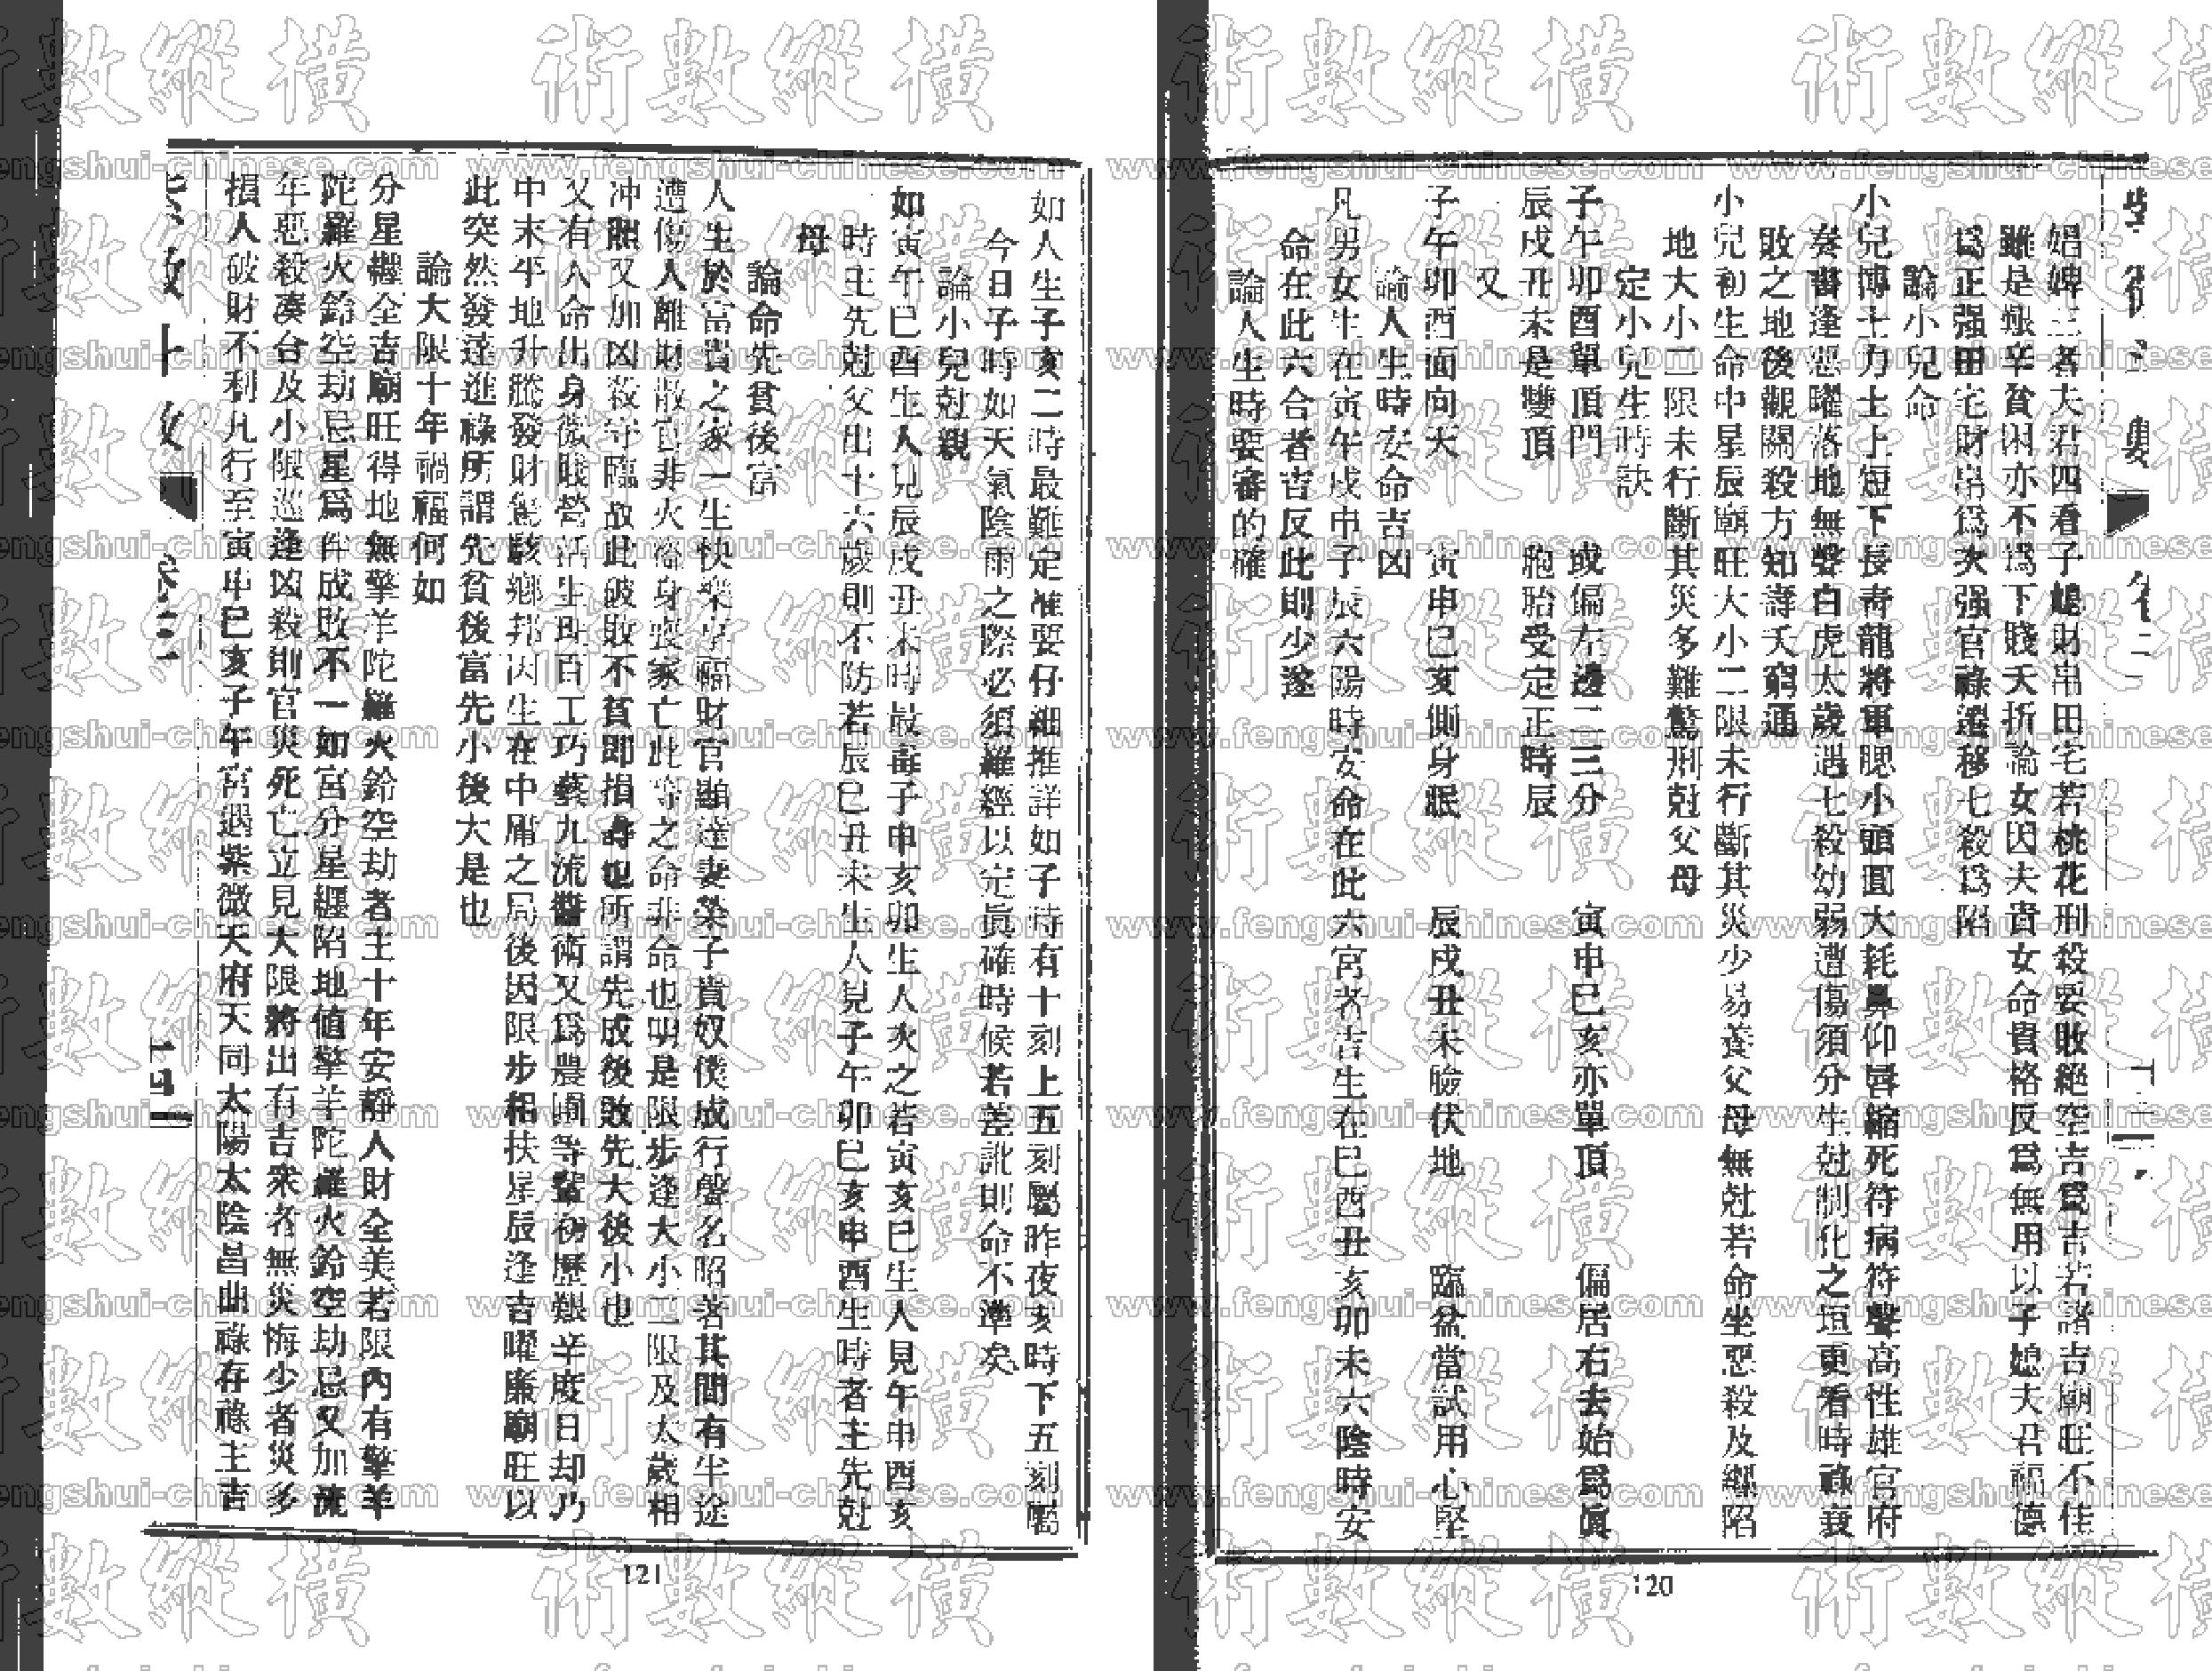 娼婢三者夫君四看子媳財帛田宅若桃花刑殺要敗絕空吉爲吉若諸吉廟旺不佳
雖是艱辛貧困亦不爲下賤夭折論女因夫貴女命貴格反爲無用以子媳夫君福德
爲正强田宅財帛爲次强官祿遷移七殺爲陷
論小兒命
小兒博士力士上短下長青龍將軍腮小頭圓大耗鼻仰唇縮死符病符聲高性雄官府
奏書逢惡曜落地無聲白虎太歲遇七殺幼弱遭傷須分生尅制化之垣更看時祿衰
敗之地後觀關殺方知壽夭窮通
小兒初生命中星辰廟旺大小二限未行斷其災少易養父母無尅若命坐惡殺及纏陷
地大小二限未行斷其災多難驚刑尅父母
定小兒生時訣
子午卯酉單頂門 或偏左邊二三分 寅申巳亥亦單頂 偏居右去始爲眞
辰戌丑未是雙頂 胞胎受定正時辰
又
子午卯酉面向天 寅申巳亥側身眠 辰戌丑未臉伏地 臨盆當試用心堅
論人生時安命吉凶
凡男女生在寅午戌申子辰六陽時安命在此六宮者吉生在巳酉丑亥卯未六陰時安
命在此六合者吉反此則少遂
論人生時要審的確
120
如人生子亥二時最難定准要仔細推詳如子時有十刻上五刻屬昨夜亥時下五刻屬
今日子時如天氣陰雨之際必須羅經以定眞確時候若差訛則命不準矣
論小兒尅親
如寅午巳酉生人見辰戌丑未時最毒子申亥卯生人次之若寅亥巳生人見午申酉亥
時主先尅父出十六歲則不防若辰巳丑未生人見子午卯巳亥申酉生時者主先尅
母
論命先貧後富
人生於富貴之家一生快樂享福財官顯達妻榮子貴奴僕成行聲名昭著其間有半途
遭傷人離財散官非火盜身喪家亡此等之命非命也明是限步逢大小二限及太歲相
冲照又加凶殺守臨故此破敗不貧即損壽也所謂先成後敗先大後小也
又有人命出身微賤營活生理百工巧藝九流醫術又爲農圃等輩初歷艱辛度日却乃
中末平地升騰發財驚駭鄉邦因生在中庸之局後因限步相扶星辰逢吉曜廉廟旺以
此突然發達進祿所謂先貧後富先小後大是也
論大限十年禍福何如
分星纏全吉廟旺得地無擎羊陀羅火鈴空劫者主十年安靜人財全美若限內有擎羊
陀羅火鈴空劫忌星爲伴成敗不一如宮分星纏陷地值擎羊陀羅火鈴空劫忌又加流
年惡殺湊合及小限巡逢凶殺則官災死亡立見大限將出有吉來者無災悔少者災多
損人破財不利凡行至寅申巳亥子午宮遇紫微天府天同太陽太陰昌曲祿存祿主吉
卷三
十四
121